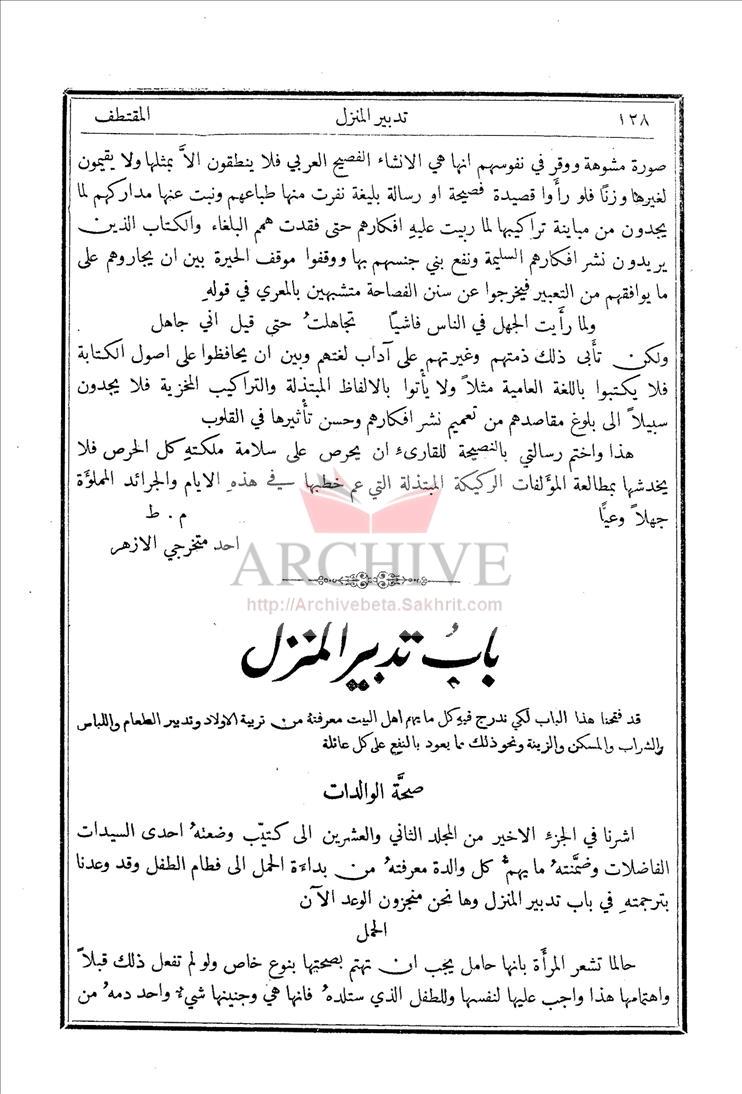 ١٢٨ تدبير المنزل المقتطف
صورة مشوهة ووقر في نفوسهم انها هي الانشاء الفصيح العربي فلا ينطقون الاَّ بمثلها ولا يقيمون
لغيرها وزنًا فلو رأَوا قصيدة فصيحة او رسالة بليغة نفرت منها طباعهم ونبت عنها مداركهم لما
يجدون من مباينة تراكيبها لما ربيت عليهِ افكارهم حتى فقدت همم البلغاء والكتاب الذين
يريدون نشر افكارهم السليمة ونفع بني جنسهم بها ووقفوا موقف الحيرة بين ان يجاروهم على
ما يوافقهم من التعبير فيخرجوا عن سنن الفصاحة متشبهين بالمعري في قولهِ
ولما رأَيت الجهل في الناس فاشيًا تجاهلتُ حتى قيل اني جاهل
ولكن تأْبى ذلك ذمتهم وغيرتهم على آداب لغتهم وبين ان يحافظوا على اصول الكتابة
فلا يكتبوا باللغة العامية مثلاً ولا يأْتوا بالالفاظ المبتذلة والتراكيب المخزية فلا يجدون
سبيلاً الى بلوغ مقاصدهم من تعميم نشر افكارهم وحسن تأْثيرها في القلوب
هذا واختم رسالتي بالنصيحة للقارىء ان يحرص على سلامة ملكتهِ كل الحرص فلا
يخدشها بمطالعة المؤَلفات الركيكة المبتذلة التي عم خطبها في هذهِ الايام والجرائد المملوَّة
جهلاً وعيًّا م . ط
احد متخرجي الازهر
ARCHIVE
http://Archivebeta.Sakhrit.com
بابُ تدبير المنزل
قد فتحنا هذا الباب لكي ندرج فيهِ كل ما يهم اهل البيت معرفتهُ من تربية الاولاد وتدبير الطعام واللباس
والشراب والمسكن والزينة ونحو ذلك مما يعود بالنفع على كل عائلة
صحَّة الوالدات
اشرنا في الجزءِ الاخير من المجلد الثاني والعشرين الى كتيّب وضعتهُ احدى السيدات
الفاضلات وضمَّنتهُ ما يهمُّ كل والدة معرفتهُ من بداءَة الحمل الى فطام الطفل وقد وعدنا
بترجمتهِ في باب تدبير المنزل وها نحن منجزون الوعد الآن
الحمل
حالما تشعر المرأَة بانها حامل يجب ان تهتم بصحتها بنوع خاص ولو لم تفعل ذلك قبلاً
واهتمامها هذا واجب عليها لنفسها وللطفل الذي ستلدهُ فانها هي وجنينها شيءٌ واحد دمهُ من